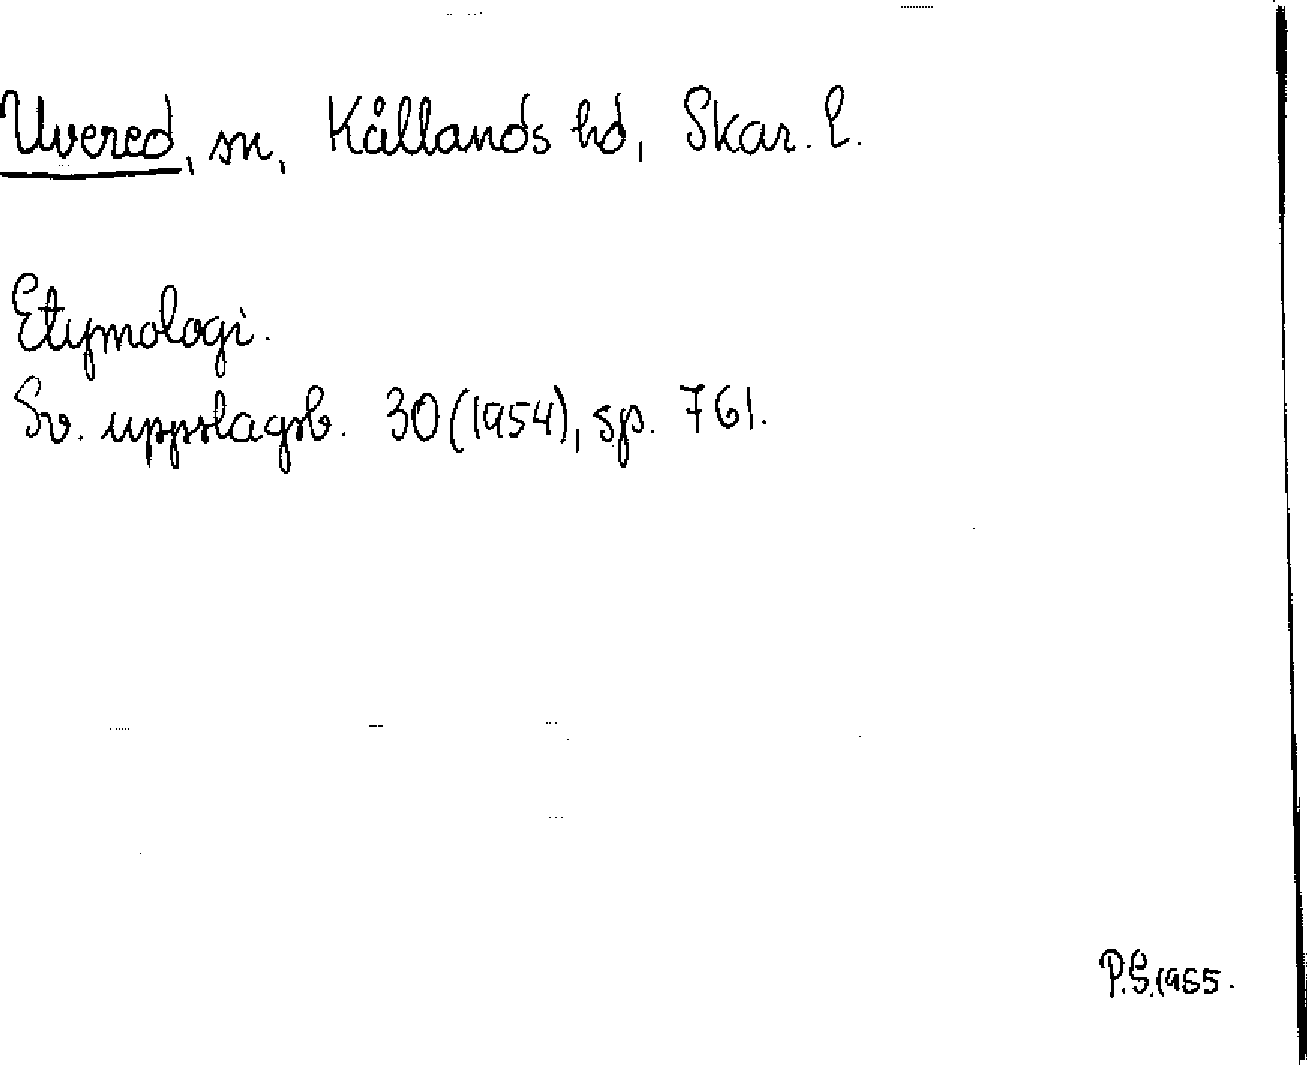 Uvered, sn, Kållands hd, Skar. l.
Etymologi.
Sv. uppslagsb. 30 (1954), sp. 761.
P.S. 1955.